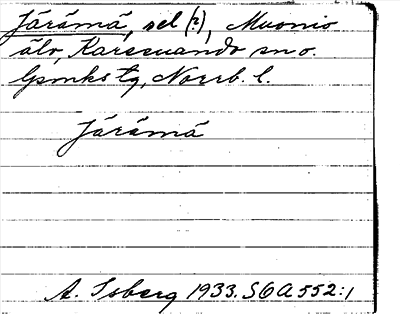 Järämä, sel (?), Muonio
älv, Karesuando sn o.
lpmks tg, Norrb. l.
Järämä
A. Isberg 1933. SOA 552:1